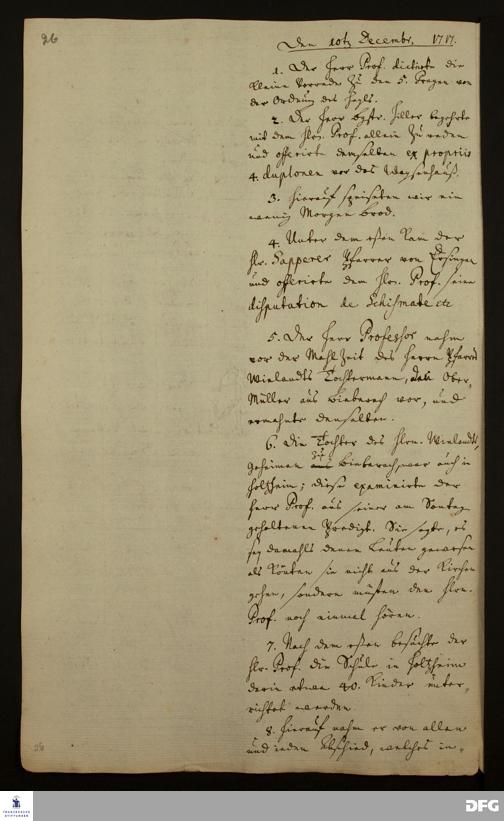 26
Den 10ten Decembr. 1717.
1. Der Herr Prof. dictirte die
kleine Vorrede zu den 5. Fragen von
der Ordnung des Heyls.
2. Der Herr Hiller begehrte
mit dem Hrn. Prof. allein zu reden
und offerirte demselben ex propriis
4. duplonen vor das Waysenhauß.
3. Hierauf speiseten wir ein
wenig Morgen brod.
4. Unter dem eßen kam der
Hr. Sapperer Pfarrer von Ersingen
und offerirte dem Hrn. Prof. seine
disputation de Schismate etc
5. Der Herr Professor nahm
vor der Mahlzeit des Herrn Pfarrer
Wielandts Tochtermann, den Ober-
Müller aus Biberach vor, und
ermahnte denselben.
6. Die Tochter des Hrn. Wielandts,
zu
Biberach, war auch in
Holtzheim; diese examinirte der
Herr Prof. aus seiner am Sontag
gehaltenen Predigt. Sie sagte, es
sey damahls denen Leuten gewesen
als könten sie nicht aus der Kirchen
gehen, sondern müsten den Hrn.
Prof. noch einmal hören.
7. Nach dem eßen besuchte der
Hr. Prof. die Schule in Holtzheim
darin etwa 40. Kinder unter-
richtet werden.
8. Hierauf nahm er von allen
und ieden Abschied, welches in-
FRANCKESCHE
STIFTUNGEN
DFG